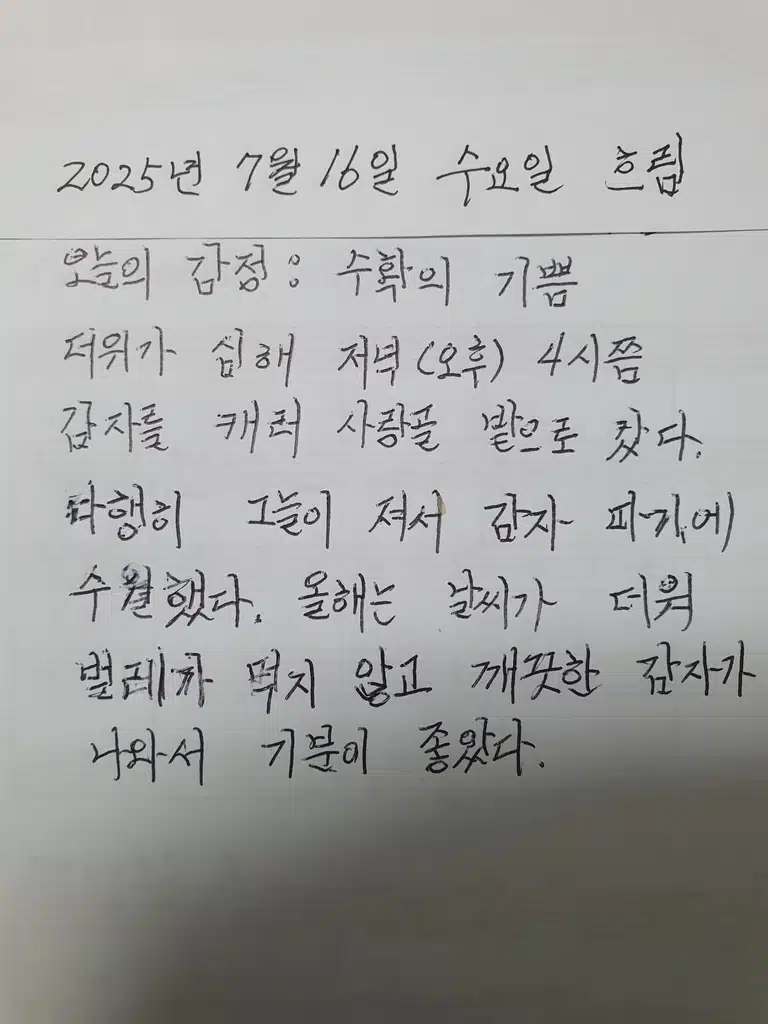 2025년 7월 16일 수요일 흐림
오늘의 감정: 수확의 기쁨
더위가 심해 저녁(오후) 4시쯤
감자를 캐러 사랑골 밭으로 갔다.
다행히 그늘이 져서 감자 파기에
수월했다. 올해는 날씨가 더워
벌레가 먹지 않고 깨끗한 감자가
나와서 기분이 좋았다.